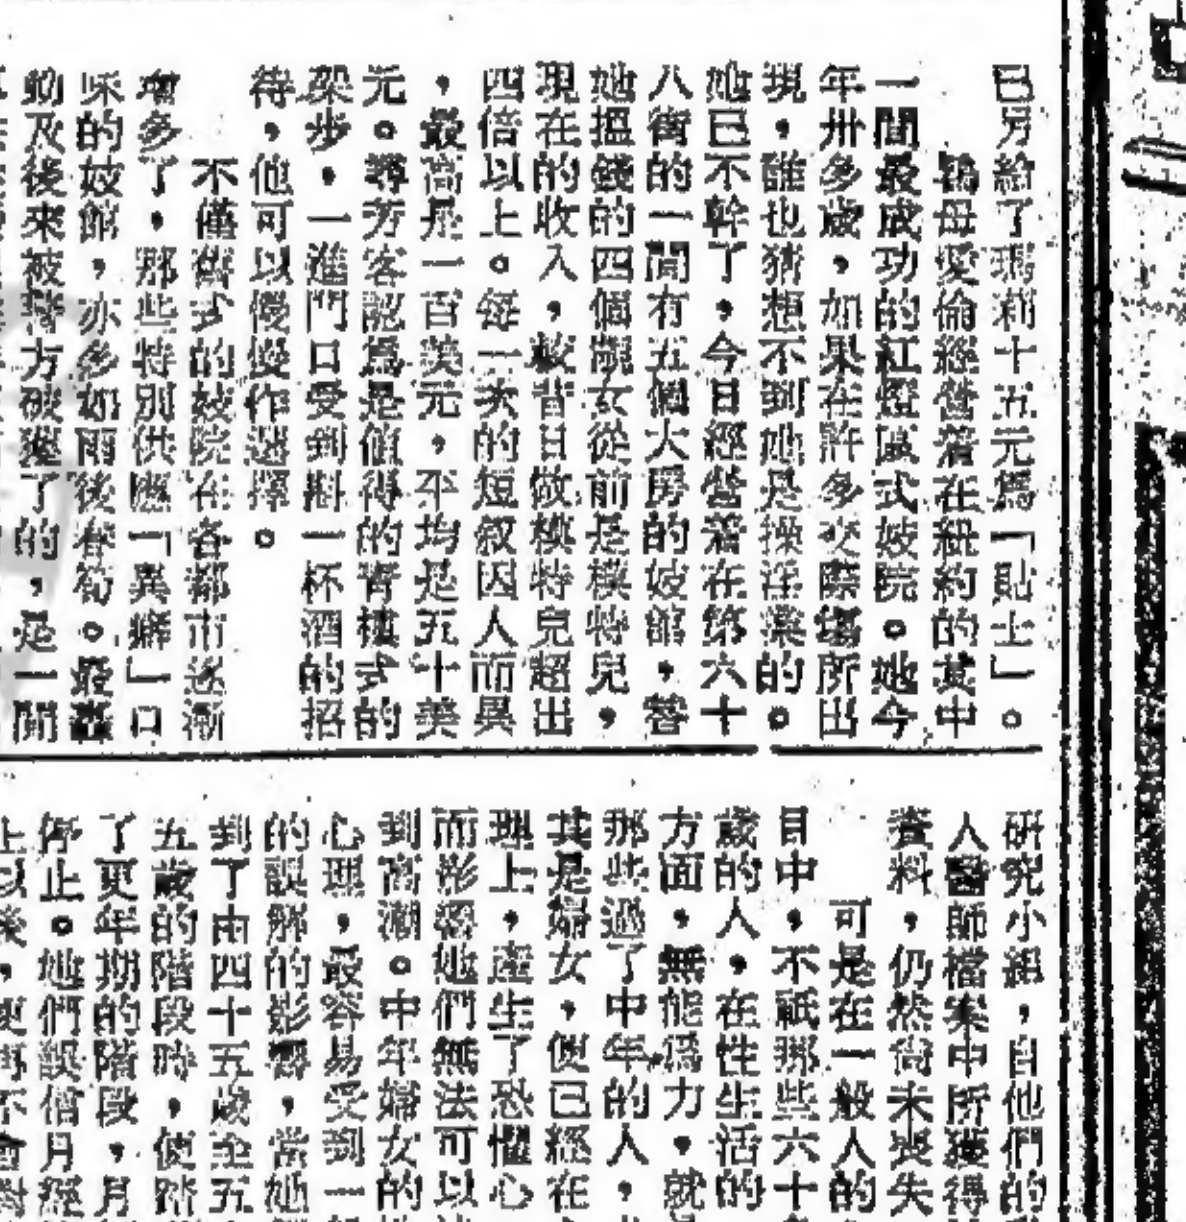 已另給了瑪莉十五元爲「貼士」。
鴇母愛倫經營着在紐約的其中
一間最成功的紅燈區式妓院。她今
年卅多歲，如果在許多交際塲所出
現，誰也猜想不到她是操淫業的。
她已不幹了，今日經營着在第六十
八街的一間有五個大房的妓館，替
她搵錢的四個靚女從前是模特兒，
現在的收入，較昔日做模特兒超出
四倍以上。每一次的短叙因人而異
，最高是一百美元，平均是五十美
元。尋芳客認爲是值得的靑樓式的
架步，一進門口受到斟一杯酒的招
待，他可以慢慢作選擇。
不僅舊式的妓院在各都市逐漸
增多了，那些特別供應「異癖」口
味的妓館，亦多如雨後春筍。最轟
動及後來被警方破獲了的，是一間
研究小組，自他們的
人醫師檔案中所獲得
資料，仍然尙未喪失
可是在一般人的
目中，不祇那些六十
歲的人，在性生活的
方面，無能爲力，就
那些過了中年的人，
其是婦女，便已經在
理上，產生了恐懼心
而形響她們無法可以
到高潮。中年婦女的
心理，最容易受到一
的誤解的影響，當她
到了由四十五歲至五
五歲的階段時，便踏
了更年期的階段，月
停止。她們誤信月經
上以後，便再不會對